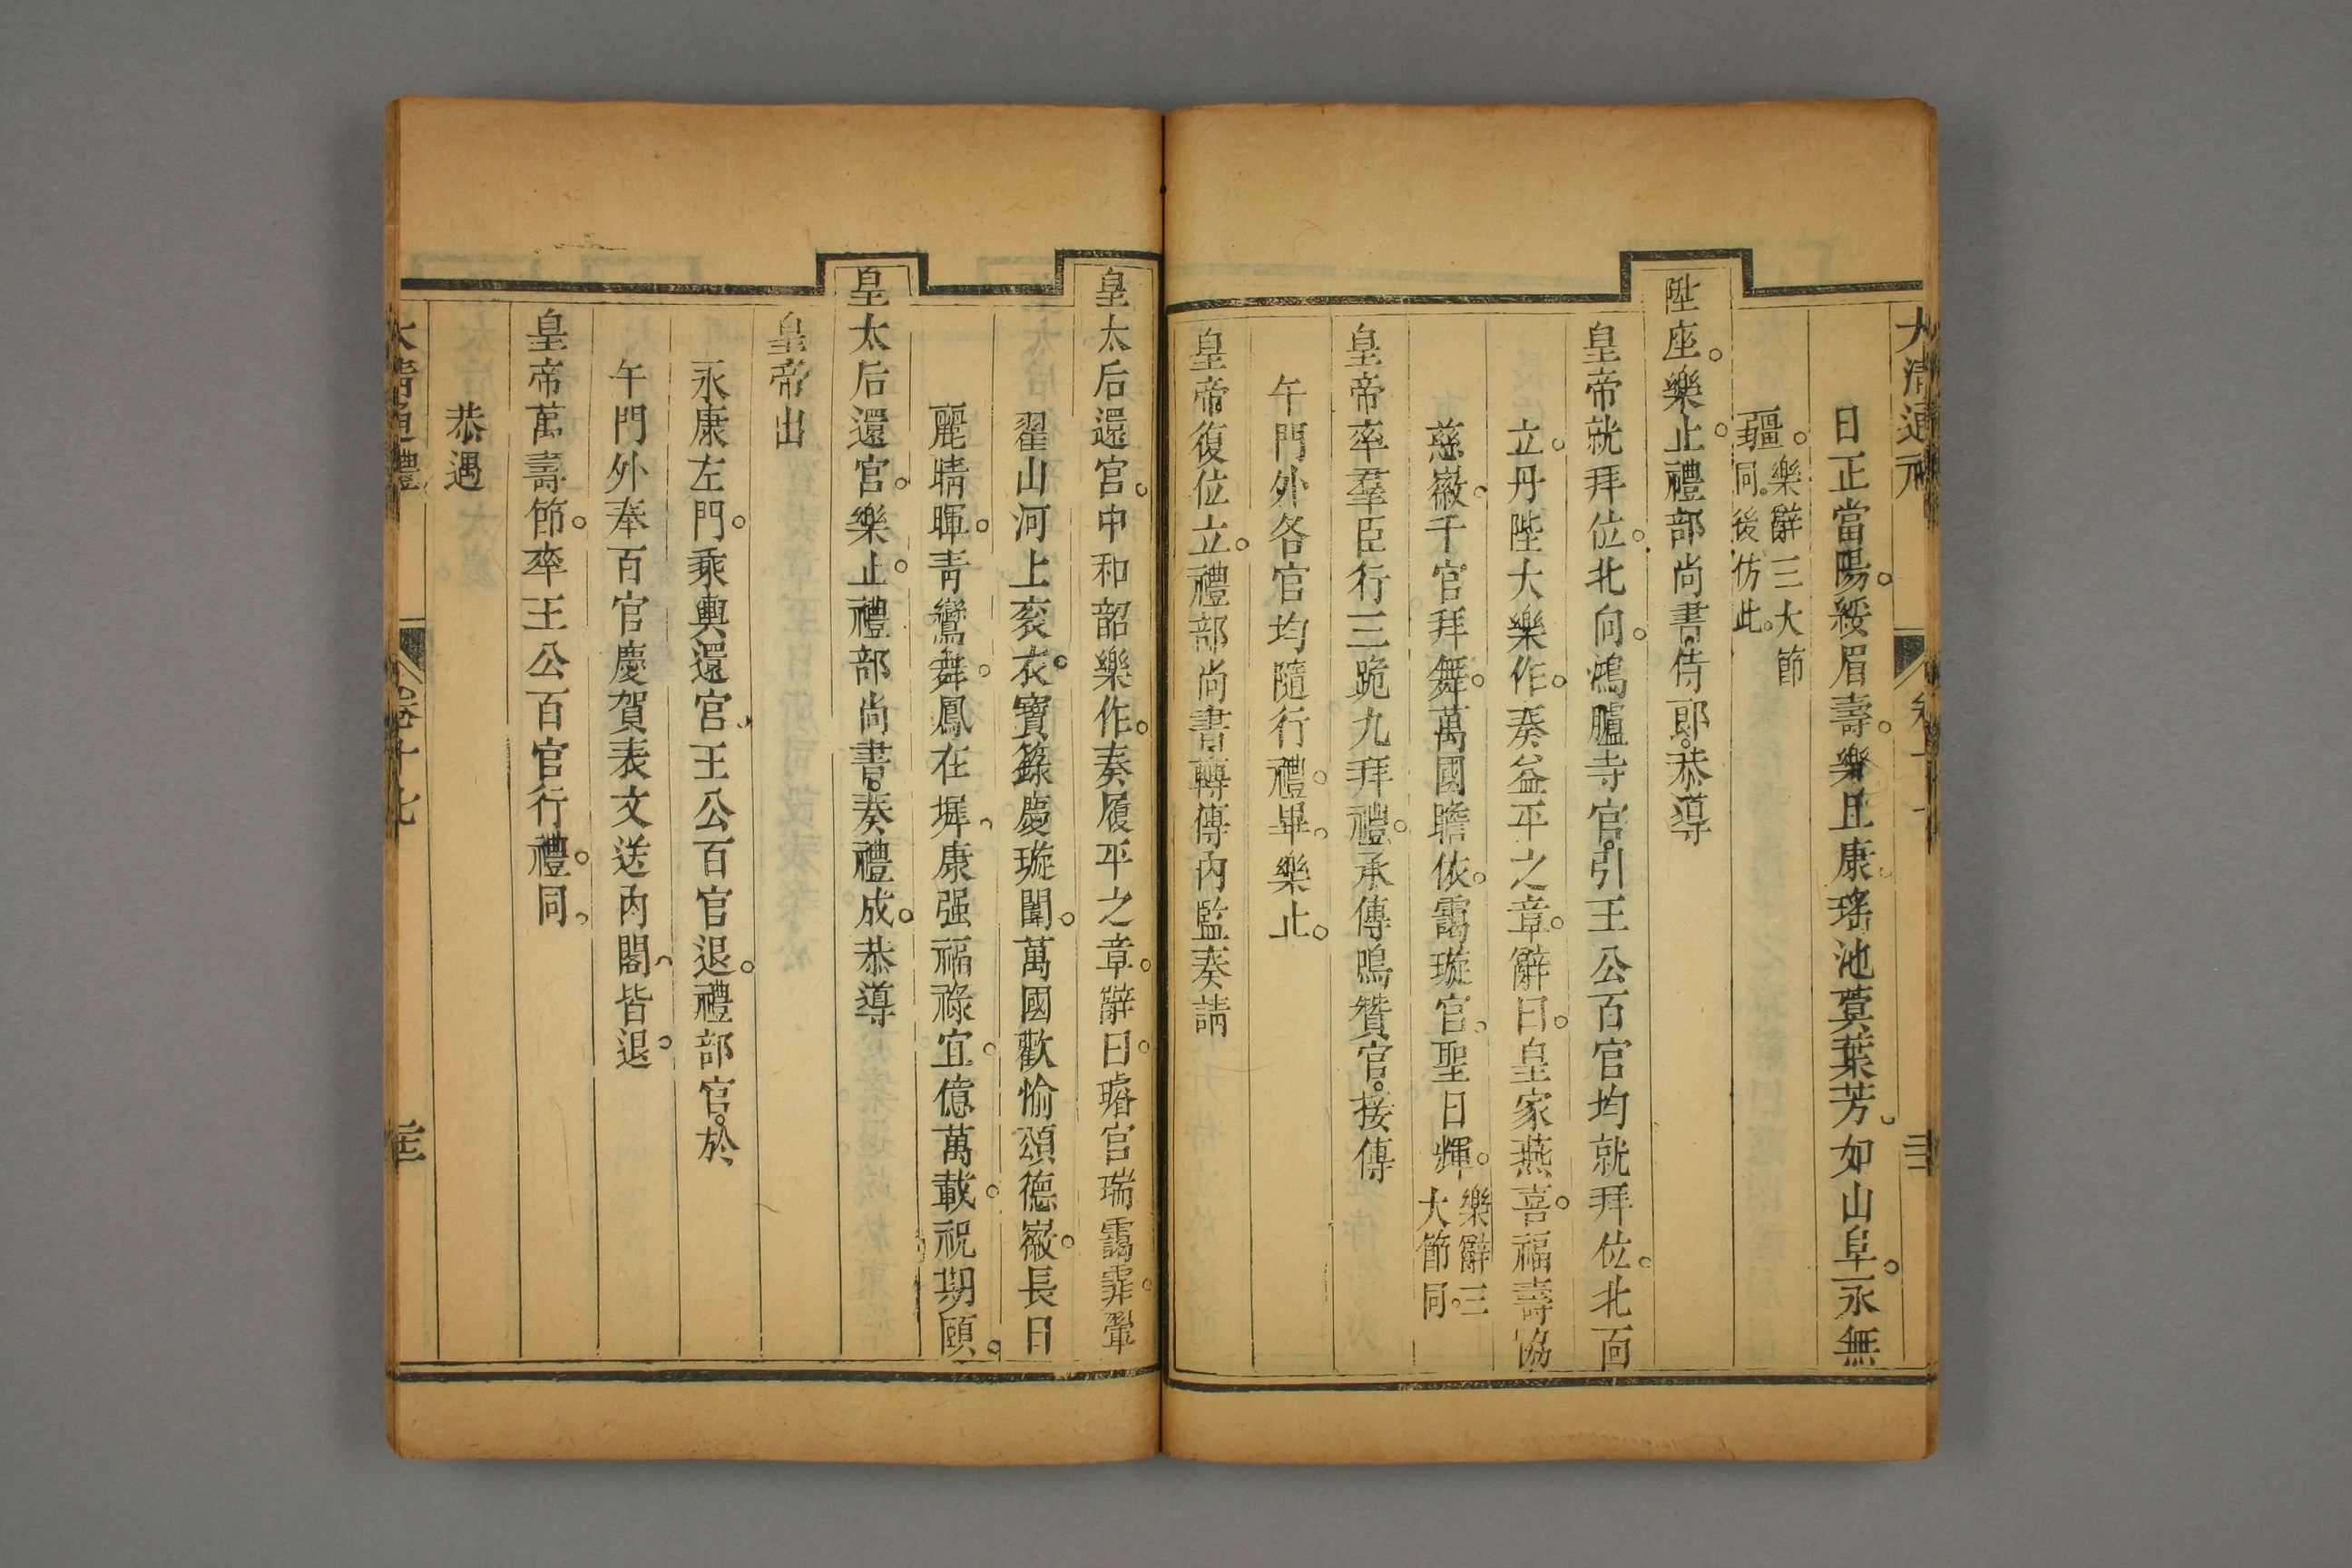 大清通
日正當陽。綏眉壽。樂且康。瑤池蓂葉芳。如山阜。永無
疆。樂辭三大節
同。後仿此。
陞座。樂止。禮部尚書。侍郎。恭導
皇帝就拜位。北向。鴻臚寺官。引王公百官均就拜位。北面
立。丹陛大樂作。奏益平之章。辭曰。皇家燕喜。福壽協
慈徽。千官拜舞。萬國瞻依。靄璇宮。聖日輝。樂辭三
大節同。
皇帝率羣臣行三跪九拜禮。承傳鳴贊官。接傳
午門外各官均隨行禮。畢。樂止。
皇帝復位立。禮部尚書轉傳內監奏請
皇太后還宮。中和韶樂作。奏履平之章。辭曰。璿宮瑞靄霏。翬
翟山河上袞衣。寶籙慶璇闈。萬國歡愉頌德徽。長日
麗晴暉。青鸞舞。鳳在墀。康强福祿宜。億萬載。祝期頤。
皇太后還宮。樂止。禮部尚書。奏禮成。恭導
皇帝出
永康左門。乘輿還宮。王公百官退。禮部官。於
午門外奉百官慶賀表文送內閣。皆退。
皇帝萬壽節。率王公百官行禮。同。
恭遇
大清通禮
卷十九